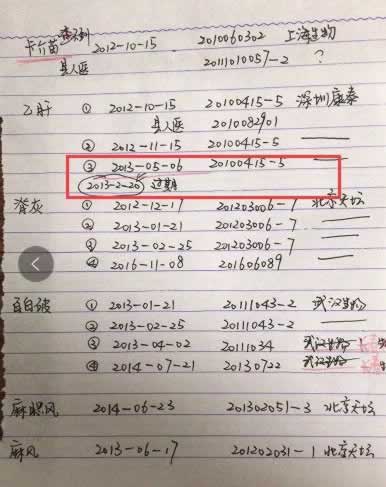 卡介苗 查不到 2012-10-15 2010060302 上海生物
县人医 2011010057-2 ?
乙肝 ① 2012-10-15 20100415-5 深圳康泰
县人医 2010082901
② 2012-11-15 20100415-5 ——
③ 2013-05-06 20100415-5 ——
2013-2-20 过期
脊灰 ① 2012-12-17 201203006-7 北京天坛
② 2013-01-21 201203006-7 ——
③ 2013-02-25 201203006-7 ——
④ 2016-11-08 201606089 ——
百白破 ① 2013-01-21 20111043-2 武汉生物
② 2013-02-25 20111043-2 ——
③ 2013-04-02 20111034 武汉生物
④ 2014-07-21 20130722 武汉生物
麻腮风 2014-06-23 201302051-3 北京天坛
麻风 2013-06-17 201202031-1 北京天坛